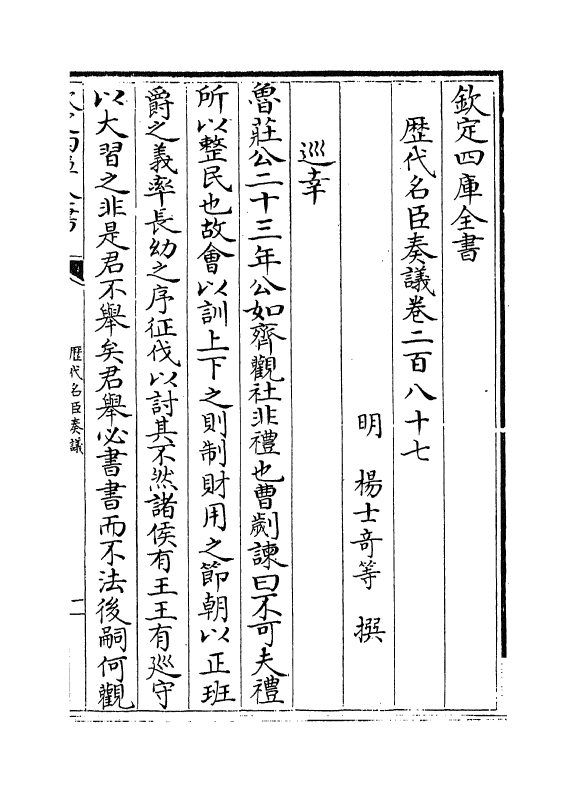 欽定四庫全書
歴代名臣奏議卷二百八十七
明　楊士奇等　撰
巡幸
魯莊公二十三年公如齊觀社非禮也曹劌諫曰不可夫禮
所以整民也故會以訓上下之則制財用之節朝以正班
爵之義率長幼之序征伐以討其不然諸侯有王王有巡守
以大習之非是君不舉矣君舉必書書而不法後嗣何觀
歴代名臣奏議